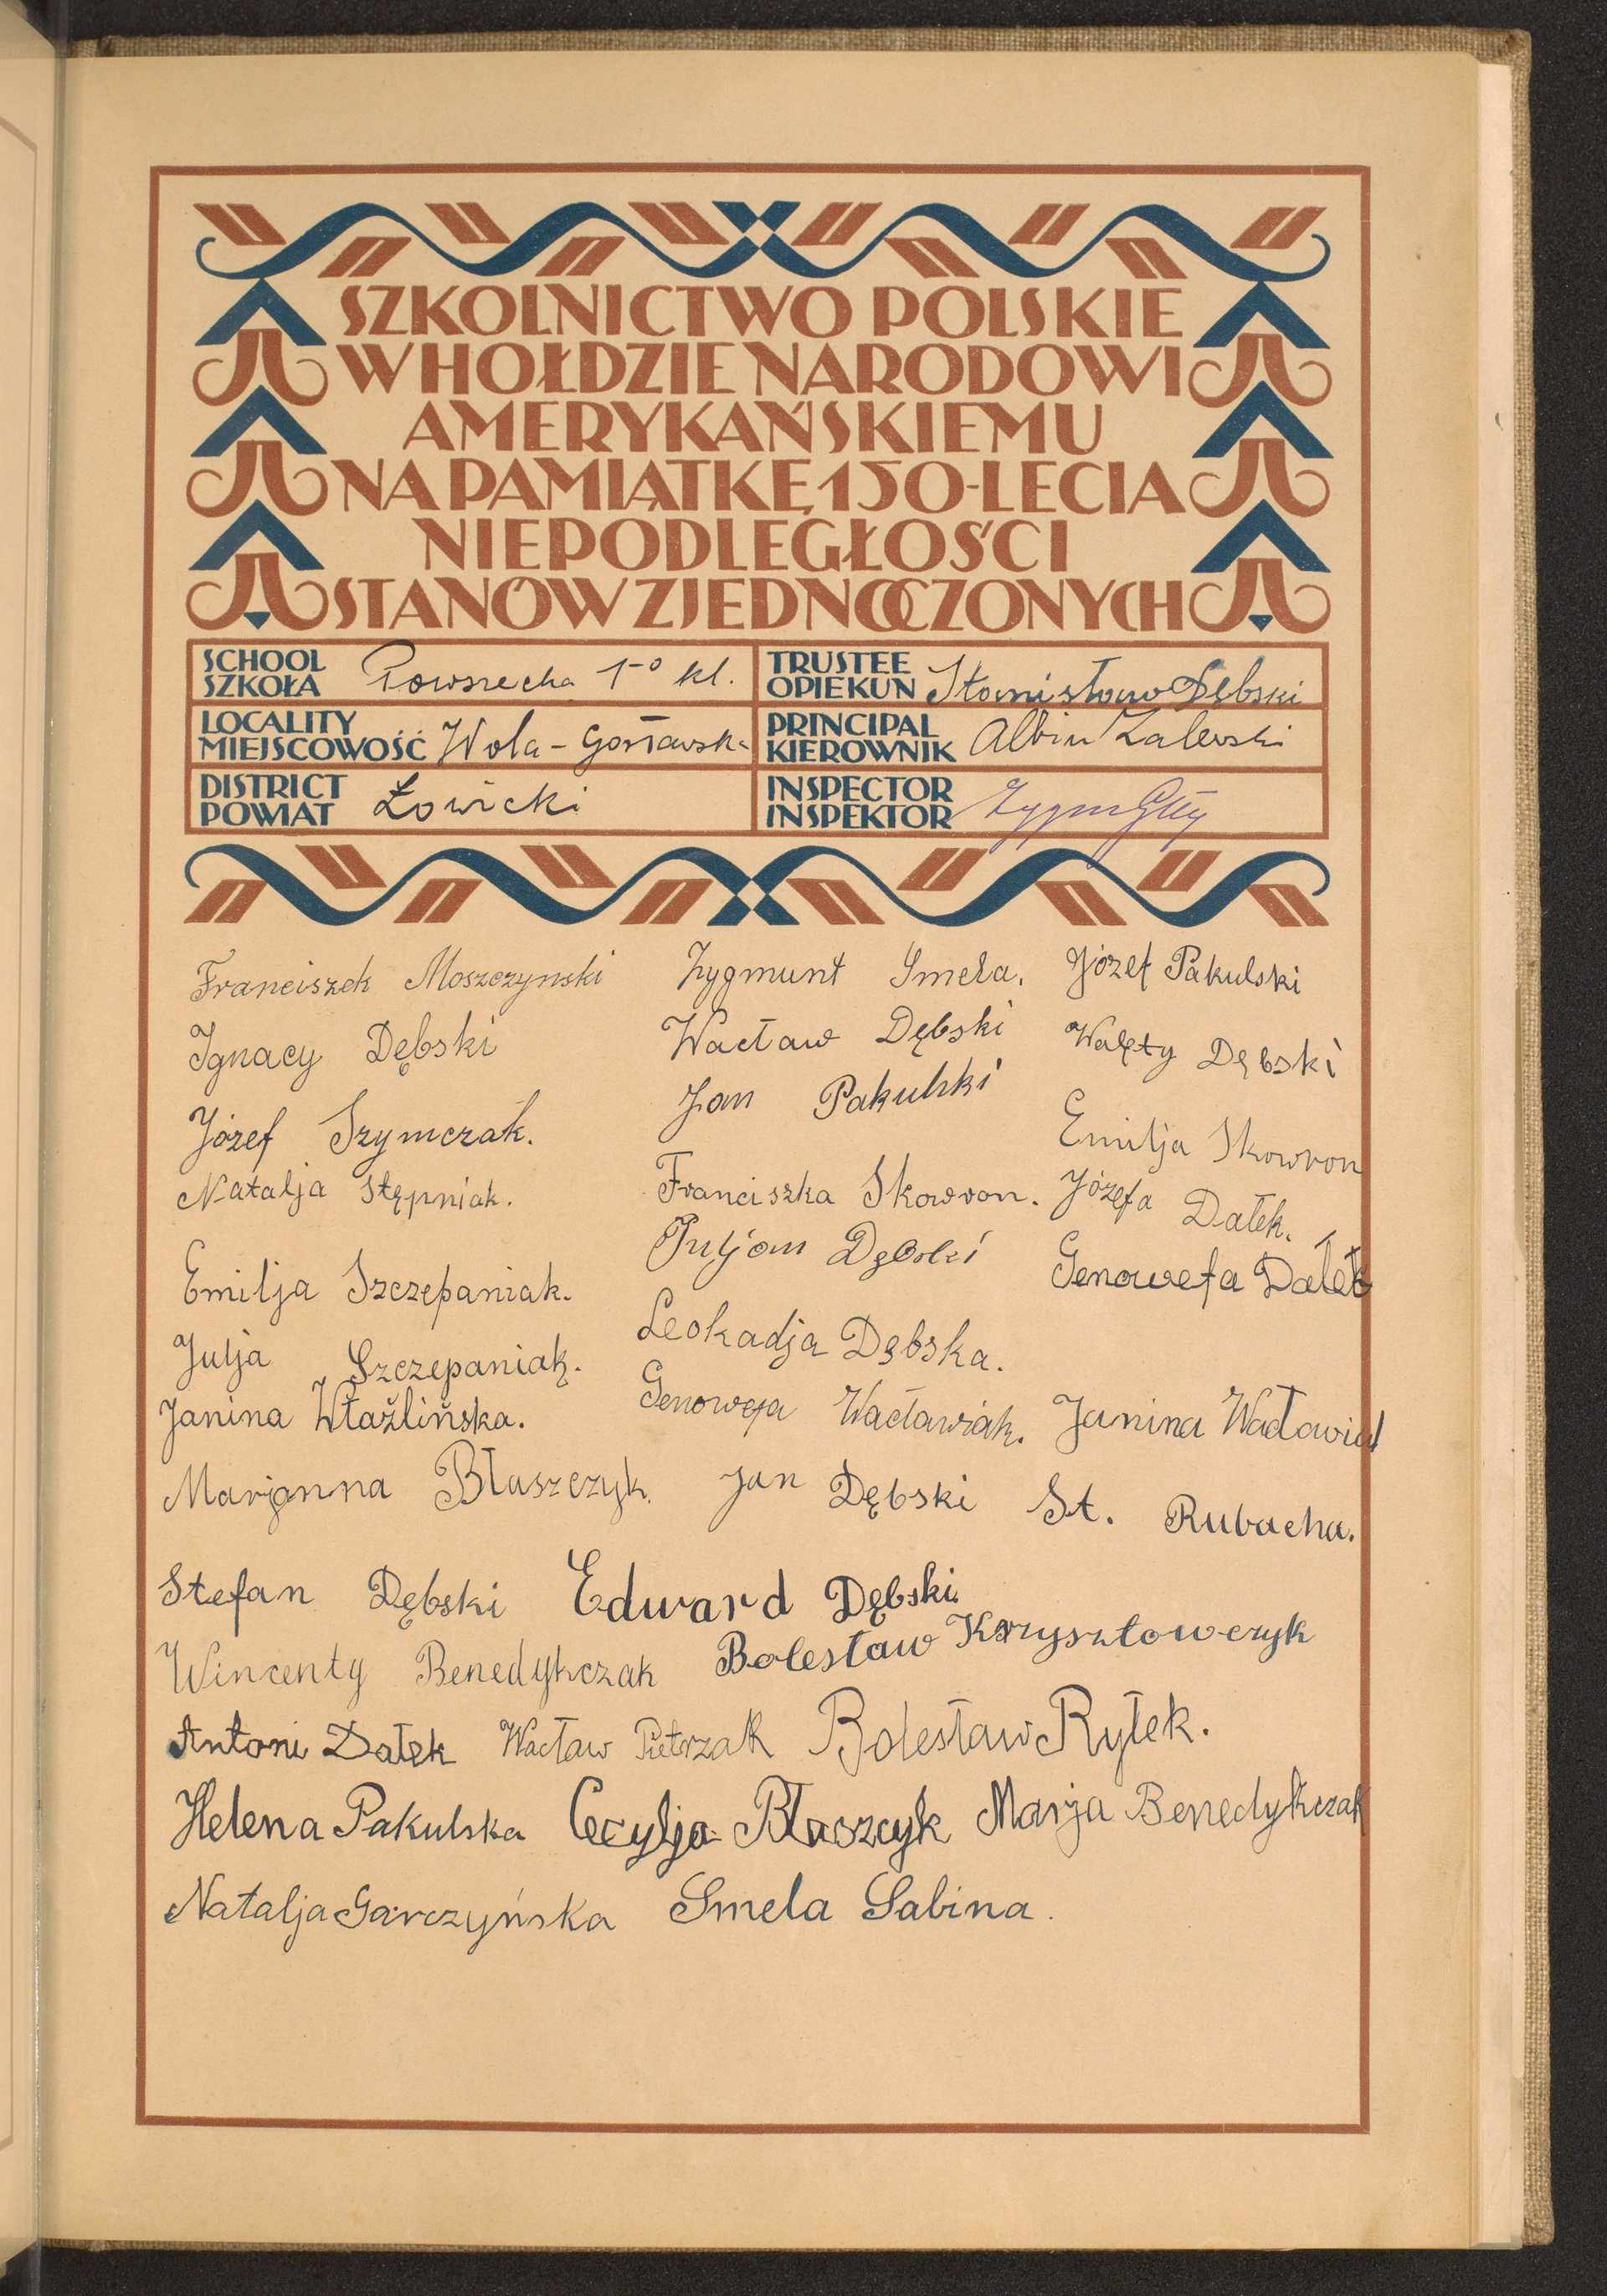 SZKOLNICTWO POLSKIE
W HOŁDZIE NARODOWI
AMERYKAŃSKIEMU
NA PAMIĄTKĘ 150-LECIA
NIEPODLEGŁOŚCI
STANÓW ZJEDNOCZONYCH
SCHOOL SZKOŁA Powszecha 1-o kl.
TRUSTEE OPIEKUN Stanisław Dębski
LOCALITY MIEJSCOWOŚĆ Wola-
PRINCIPAL KIEROWNIK Albin Zalewski
DISTRICT POWIAT Łowicki
INSPECTOR INSPEKTOR
Franciszek Moszczynski Zygmunt Smela. Józef Pakulski
Ignacy Dębski Wacław Dębski Walęty Dębski
Józef Szymczak. Jan Pakulski Emilja Skowron
Natalja Stępniak. Franciszka Skowron. Józefa Dałek.
Emilja Szczepaniak. Juljan Dębski Genowefa Dałek
Julja Szczepaniak. Leokadja Dębska.
Janina Właźlińska. Genowefa Wacławiak. Janina Wacławiak
Marjanna Błaszczyk. Jan Dębski St. Rubacha.
Stefan Dębski Edward Dębski
Wincenty Benedykczak Bolesław Krzysztowczyk
Antoni Dałek Wacław Pietrzak Bolesław Ryłek.
Helena Pakulska Cecylja Błaszcyk Marja Benedykczak
Natalja Garczyńska Smela Sabina.